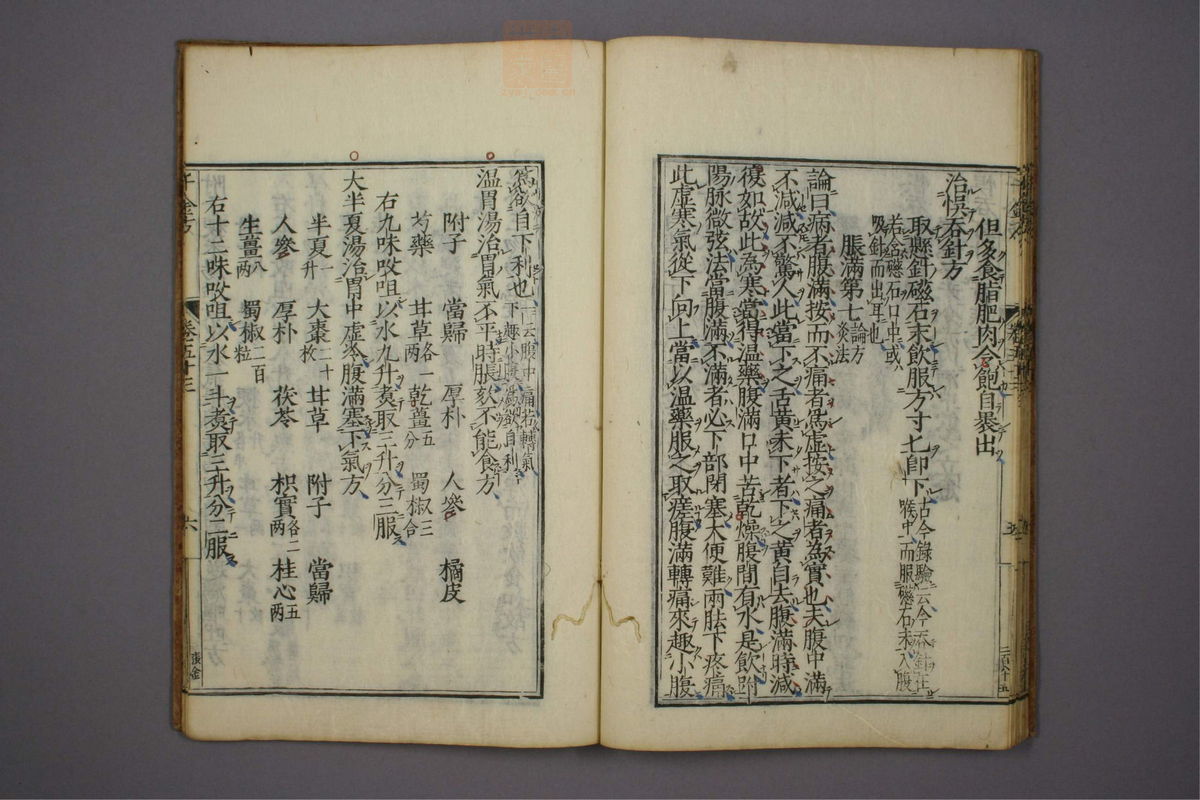 但多食脂肥肉令飽自裹出
治悞吞針方
取懸針磁石末飲服方寸匕卽下古今錄驗云今吞針在
喉中而服磁石末入腹
若含磁石口中或
吸針而出耳也
脹滿第七論方
灸法
論曰病者腹滿按而不痛者爲虛按之痛者為實也夫腹中滿
不減減不驚人此當下之舌黃未下者下之黃自去腹滿時減
復如故此為寒當得温藥腹滿口中苦乾燥腹間有水是飲趺
陽脉微弦法當腹滿不滿者必下部閉塞大便難兩胠下疼痛
此虛寒氣從下向上當以温藥服之取瘥腹滿轉痛來趣小腹
為欲自下利也一云腹中痛若轉氣
下趣小腹爲欲自利
温胃湯治胃氣不平時脹欬不能食方
附子 當歸 厚朴 人參 橘皮
芍藥 甘草各一兩 乾薑五分 蜀椒三合
右九味㕮咀以水九升煑取三升分三服
大半夏湯治胃中虛冷腹滿塞下氣方
半夏一升 大棗二十枚 甘草 附子 當歸
人參 厚朴 茯苓 枳實各二兩 桂心五兩
生薑八兩 蜀椒二百粒
右十二味㕮咀以水一斗煑取三升分三服
千金方
卷五十三
六